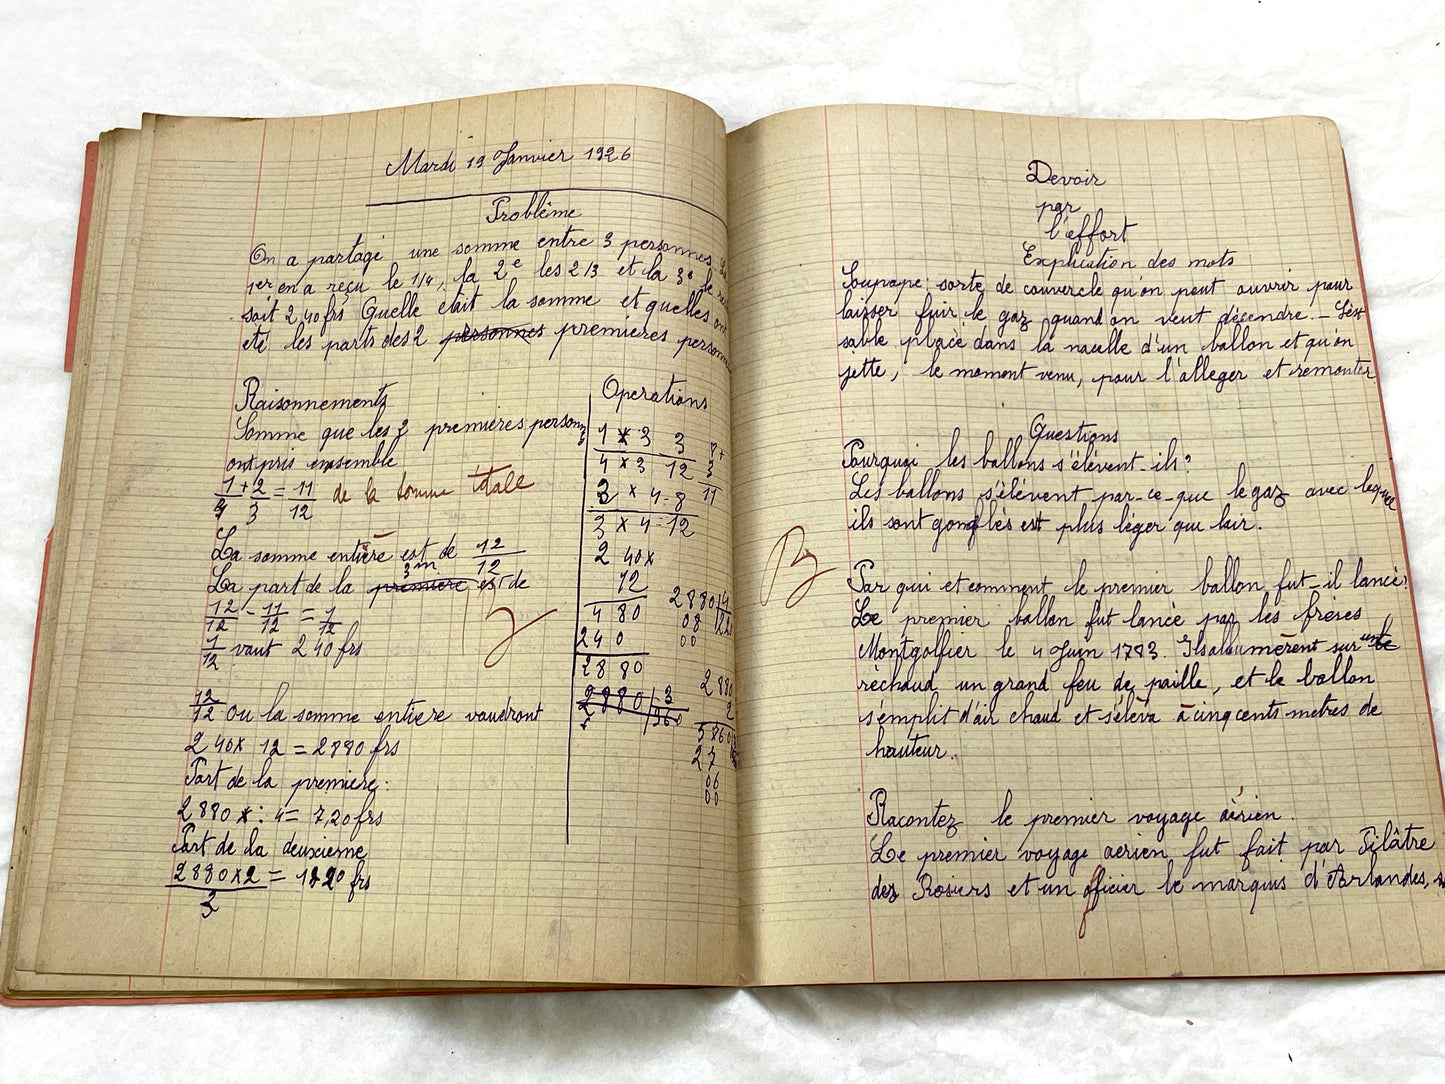 Mardi 19 Janvier 1926
Problème
On a partagé une somme entre 3 personnes
1er en a reçu le 1/4, la 2e les 2/3 et la 3e le
soit 240frs Quelle était la somme et quelles ont
été les parts des 2 personnes premières person
Raisonnements
Somme que les 2 premières person
ont pris ensemble
1/4 + 2/3 = 11/12 de la somme totale
La somme entière est de 12/12
La part de la première 3m est de
12/12 - 11/12 = 1/12
1/12 vaut 240 frs
12/12 ou la somme entière vaudront
240 x 12 = 2880 frs
Part de la première :
2880 x : 4 = 7,20 frs
Part de la deuxième
2880 x 2 / 3 = 1920 frs
Operations
1 x 3 3 8+
4 x 3 12 3
2 x 4 - 8 11
3 x 4 - 12
2 40x
12
4 80
2 4 0
2 8 80
2880 | 4
08
00
2880 | 3
960
2880
2
5860
27
06
00
B
Devoir
par
l'effort
Explication des mots
Soupape : sorte de couvercle qu'on peut ouvrir pour
laisser fuir le gaz quand on veut décendre. – Lest
sable placé dans la nacelle d'un ballon et qu'on
jette, le moment venu, pour l'alleger et remonter
Questions
Pourquoi les ballons s'élèvent-ils ?
Les ballons s'élèvent par-ce-que le gaz avec lequel
ils sont gonflés est plus léger que lair.
Par qui et comment le premier ballon fut-il lancé?
Le premier ballon fut lancé par les frères
Montgolfier le 4 Juin 1783. Ils allumèrent sur un
réchaud un grand feu de paille, et le ballon
s'emplit d'air chaud et s'éleva à cinq cents metres de
hauteur.
Racontez le premier voyage aérien.
Le premier voyage aerien fut fait par Pilâtre
dez Rosiers et un officier le marquis d'Arlandes,